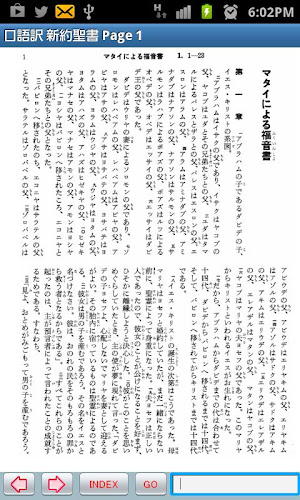 6:02PM
口語訳 新約聖書 Page 1
1
マタイによる福音書
1. 1—23
マタイによる福音書
第一章
アブラハムの子であるダビデの子、
イエス・キリストの系図。
アブラハムはイサクの父であり、イサクはヤコブの
父、ヤコブはユダとその兄弟たちとの父、ユダはタマ
ルによるパレスとザラとの父、パレスはエスロンの父、エ
スロンはアラムの父、アラムはアミナダブの父、アミ
ナダブはナアソンの父、ナアソンはサルモンの父、サ
ルモンはラハブによるボアズの父、ボアズはルツによる
オベデの父、オベデはエッサイの父、エッサイはダビ
デ王の父であった。
ダビデはウリヤの妻によるソロモンの父であり、ソ
ロモンはレハベアムの父、レハベアムはアビヤの父、ア
ビヤはアサの父、アサはヨサパテの父、ヨサパテはヨ
ラムの父、ヨラムはウジヤの父、ウジヤはヨタムの父、
ヨタムはアハズの父、アハズはヒゼキヤの父、ヒゼキヤ
はマナセの父、マナセはアモンの父、アモンはヨシヤの
父、ヨシヤはバビロンへ移されたころ、エコニヤと
その兄弟たちとの父となった。
バビロンへ移されたのち、エコニヤはサラテルの父
となった。サラテルはゾロバベルの父、ゾロバベルは
アビウデの父、アビウデはエリヤキムの父、エリヤキム
はアゾルの父、アゾルはサドクの父、サドクはアキム
の父、アキムはエリウデの父、エリウデはエレアザル
の父、エレアザルはマタンの父、マタンはヤコブの父、
ヤコブはマリヤの夫ヨセフの父であった。このマリヤ
からキリストといわれるイエスがお生れになった。
だから、アブラハムからダビデまでの代は合わせて
十四代、ダビデからバビロンへ移されるまでは十四代、
そして、バビロンへ移されてからキリストまでは十四代
である。
イエス・キリストの誕生の次第はこうであった。母
マリヤはヨセフと婚約していたが、まだ一緒にならない
前に、聖霊によって身重になった。夫ヨセフは正しい
人であったので、彼女のことが公けになることを好まず、
ひそかに離縁しようと決心した。彼がこのことを思い
めぐらしていたとき、主の使が夢に現れて言った、「ダビ
デの子ヨセフよ、心配しないでマリヤを妻として迎える
がよい。その胎内に宿っているものは聖霊によるのであ
る。彼女は男の子を産むであろう。その名をイエスと
名づけなさい。彼は、おのれの民をそのもろもろの罪か
ら救う者となるからである」。すべてこれらのことが
起ったのは、主が預言者によって言われたことの成就す
るためである。すなわち、
「見よ、おとめがみごもって男の子を産むであろう。
INDEX
GO